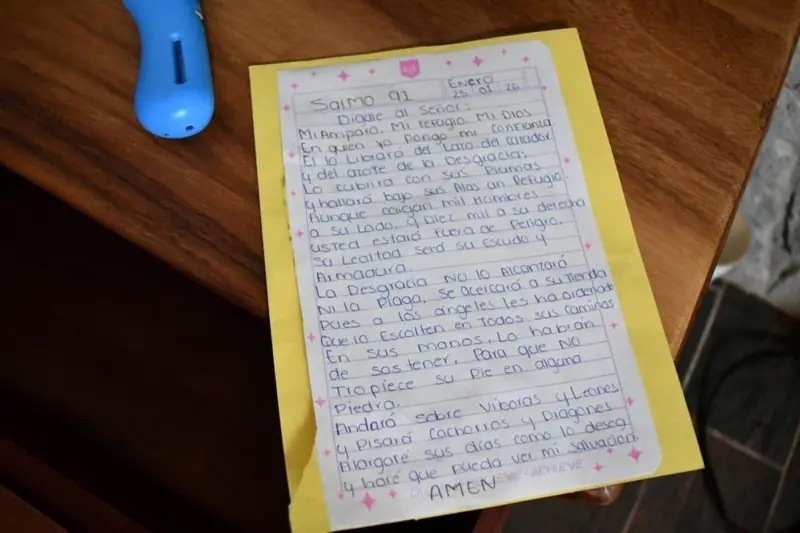 Salmo 91
Enero
25 01 26
Digale al Señor:
Mi Amparo, Mi refugio, Mi Dios
En quien yo Pongo mi confianza
El lo Librará del Lazo del Cazador
y del azote de la Desgracia;
Lo cubrira con sus Plumas
y hallará bajo sus Alas un Refugio.
Aunque caigan mil Hombres
a su Lado, y Diez mil a su derecha
usted estará Fuera de Peligro.
Su Lealtad será su Escudo y
Armadura.
La Desgracia No lo Alcanzará
Ni la Plaga, se Acercará a su Tienda
Pues a los angeles les ha ordenado
Que lo Escolten en Todos sus caminos
En sus manos, Lo habrán
de sostener, Para que No
Tropiece su Pie en alguna
Piedra.
Andará sobre Viboras y Leones
y Pisará Cachorros y Dragones
Alargaré sus días como lo desea
y haré que pueda ver mi salvacion.
AMEN
ACHIEVE